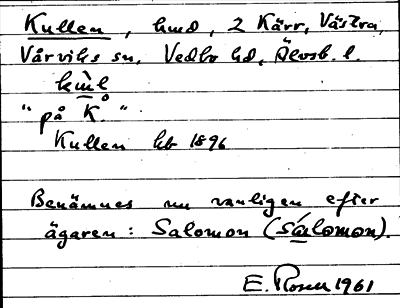 Kullen, hmd, 2 Kärr, Västra,
Vårviks sn, Vedbo hd, Älvsb. l.
"på K."
Kullen kb 1896
Benämnes nu vanligen efter
ägaren: Salomon (sálomon).
E. Rosell 1961